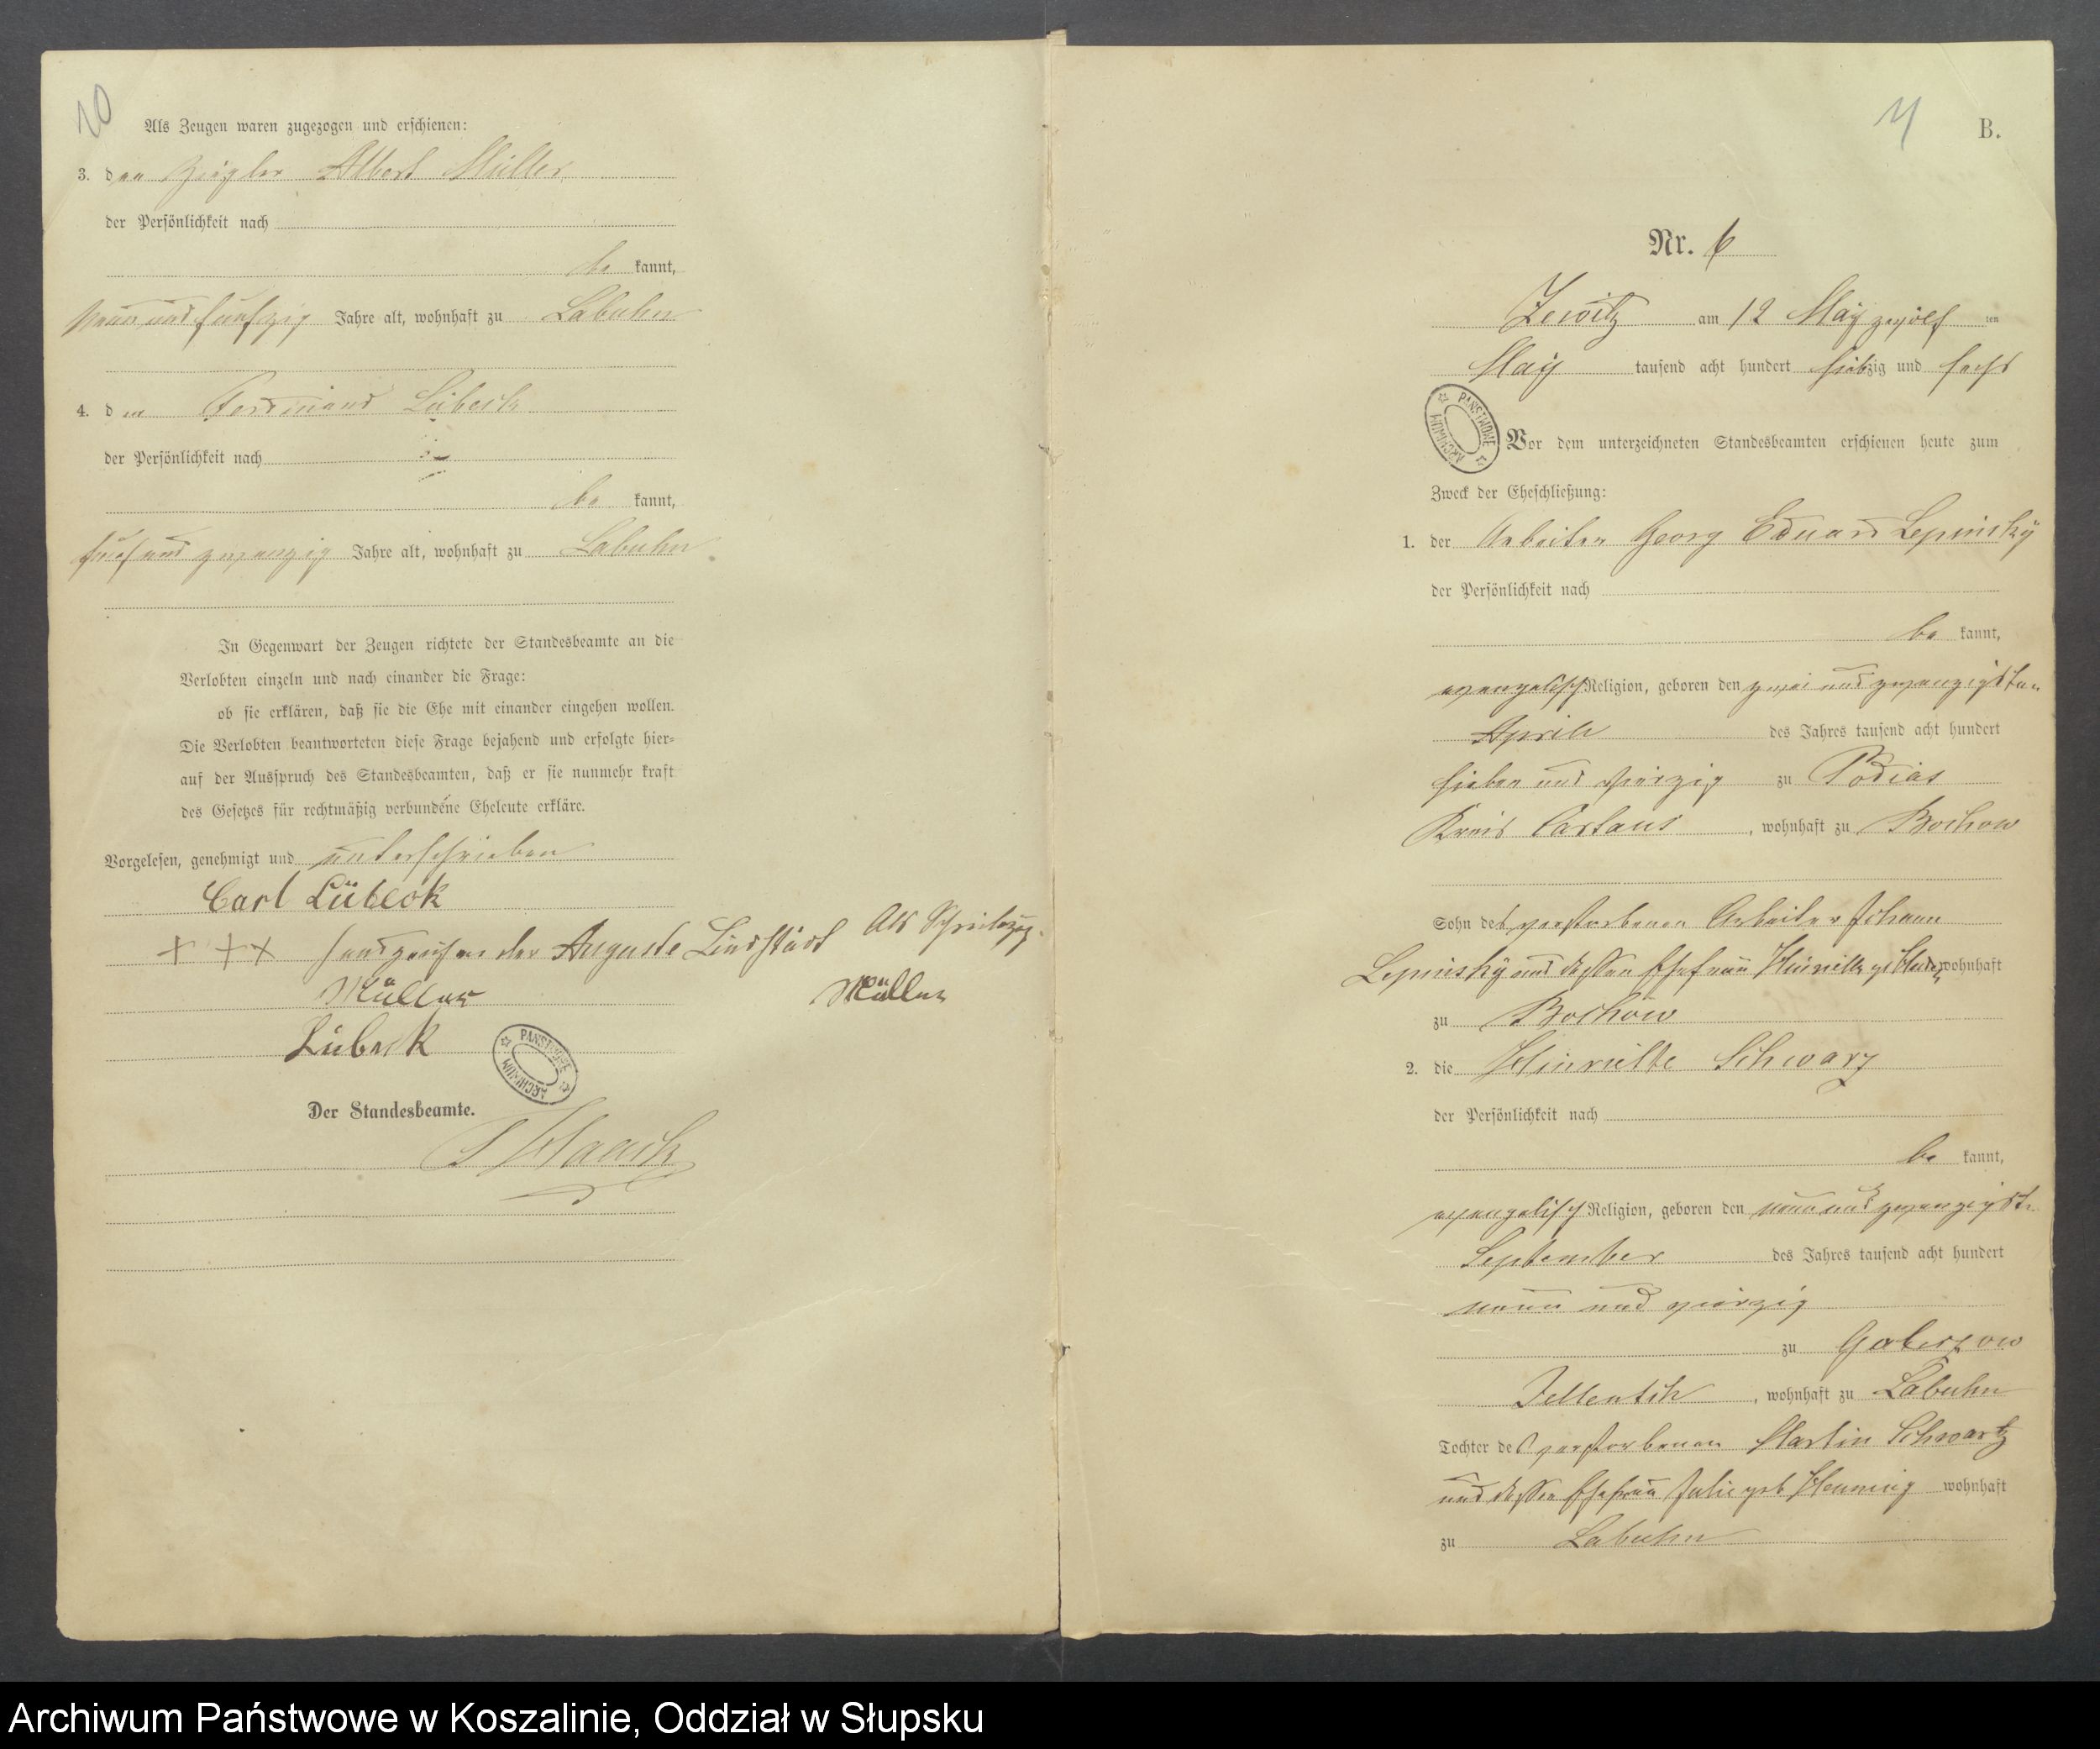 10
Als Zeugen waren zugezogen und erschienen:
3. den Ziegler Albert Müller
der Persönlichkeit nach
be kannt,
neun und fünfzig Jahre alt, wohnhaft zu Labuhn
4. den Ferdinand Lübeck
der Persönlichkeit nach
be kannt,
fünf und zwanzig Jahre alt, wohnhaft zu Labuhn
In Gegenwart der Zeugen richtete der Standesbeamte an die
Verlobten einzeln und nach einander die Frage:
ob sie erklären, daß sie die Ehe mit einander eingehen wollen.
Die Verlobten beantworteten diese Frage bejahend und erfolgte hier-
auf der Ausspruch des Standesbeamten, daß er sie nunmehr kraft
des Gesetzes für rechtmäßig verbundene Eheleute erkläre.
Vorgelesen, genehmigt und unterschrieben
Carl Lübeck
+ + + Handzeichen der Auguste Lindstädt Als
Müller Müller
Lübeck
PAŃSTWOWE ARCHIWUM
Der Standesbeamte.
Haack
11
B.
Nr. 6
Zewitz am 12 May zwölf ten
May tausend acht hundert siebzig und sechs
PAŃSTWOWE ARCHIWUM
Vor dem unterzeichneten Standesbeamten erschienen heute zum
Zweck der Eheschließung:
1. der Arbeiter Georg Eduard Lepinsky
der Persönlichkeit nach
be kannt,
evangelisch Religion, geboren den zwei und zwanzigsten
April des Jahres tausend acht hundert
sieben und vierzig zu Podias
Kreis Cartaus, wohnhaft zu Bochow
Sohn des verstorbenen Arbeiter Johann
Lepinsky und dessen Ehefrau Hinriette geb wohnhaft
zu Bochow
2. die Hinriette Schwarz
der Persönlichkeit nach
be kannt,
evangelisch Religion, geboren den neun und zwanzigste
September des Jahres tausend acht hundert
neun und vierzig
zu
Jellentsch, wohnhaft zu Labuhn
Tochter des verstorbenen Martin Schwartz
und dessen Ehefrau Julie geb Henning wohnhaft
zu Labuhn
Archiwum Państwowe w Koszalinie, Oddział w Słupsku